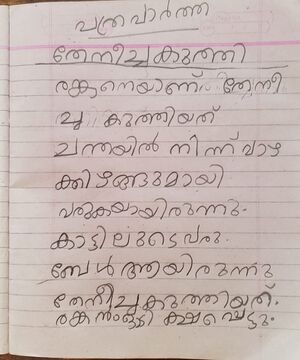 പത്രവാർത്ത
തേനീച്ചകുത്തി
രങ്കനെയാണ് തേനീ
ച്ച കുത്തിയത്
ചന്തയിൽ നിന്ന് വാഴ
ക്കിഴങ്ങുമായി
വരുകയായിരുന്നു.
കാട്ടിലുടെവരു.
മ്പേൾ ആയിരുന്നു
തേനീച്ചകുത്തിയത്.
രങ്കൻഓടി രക്ഷപെട്ടു.